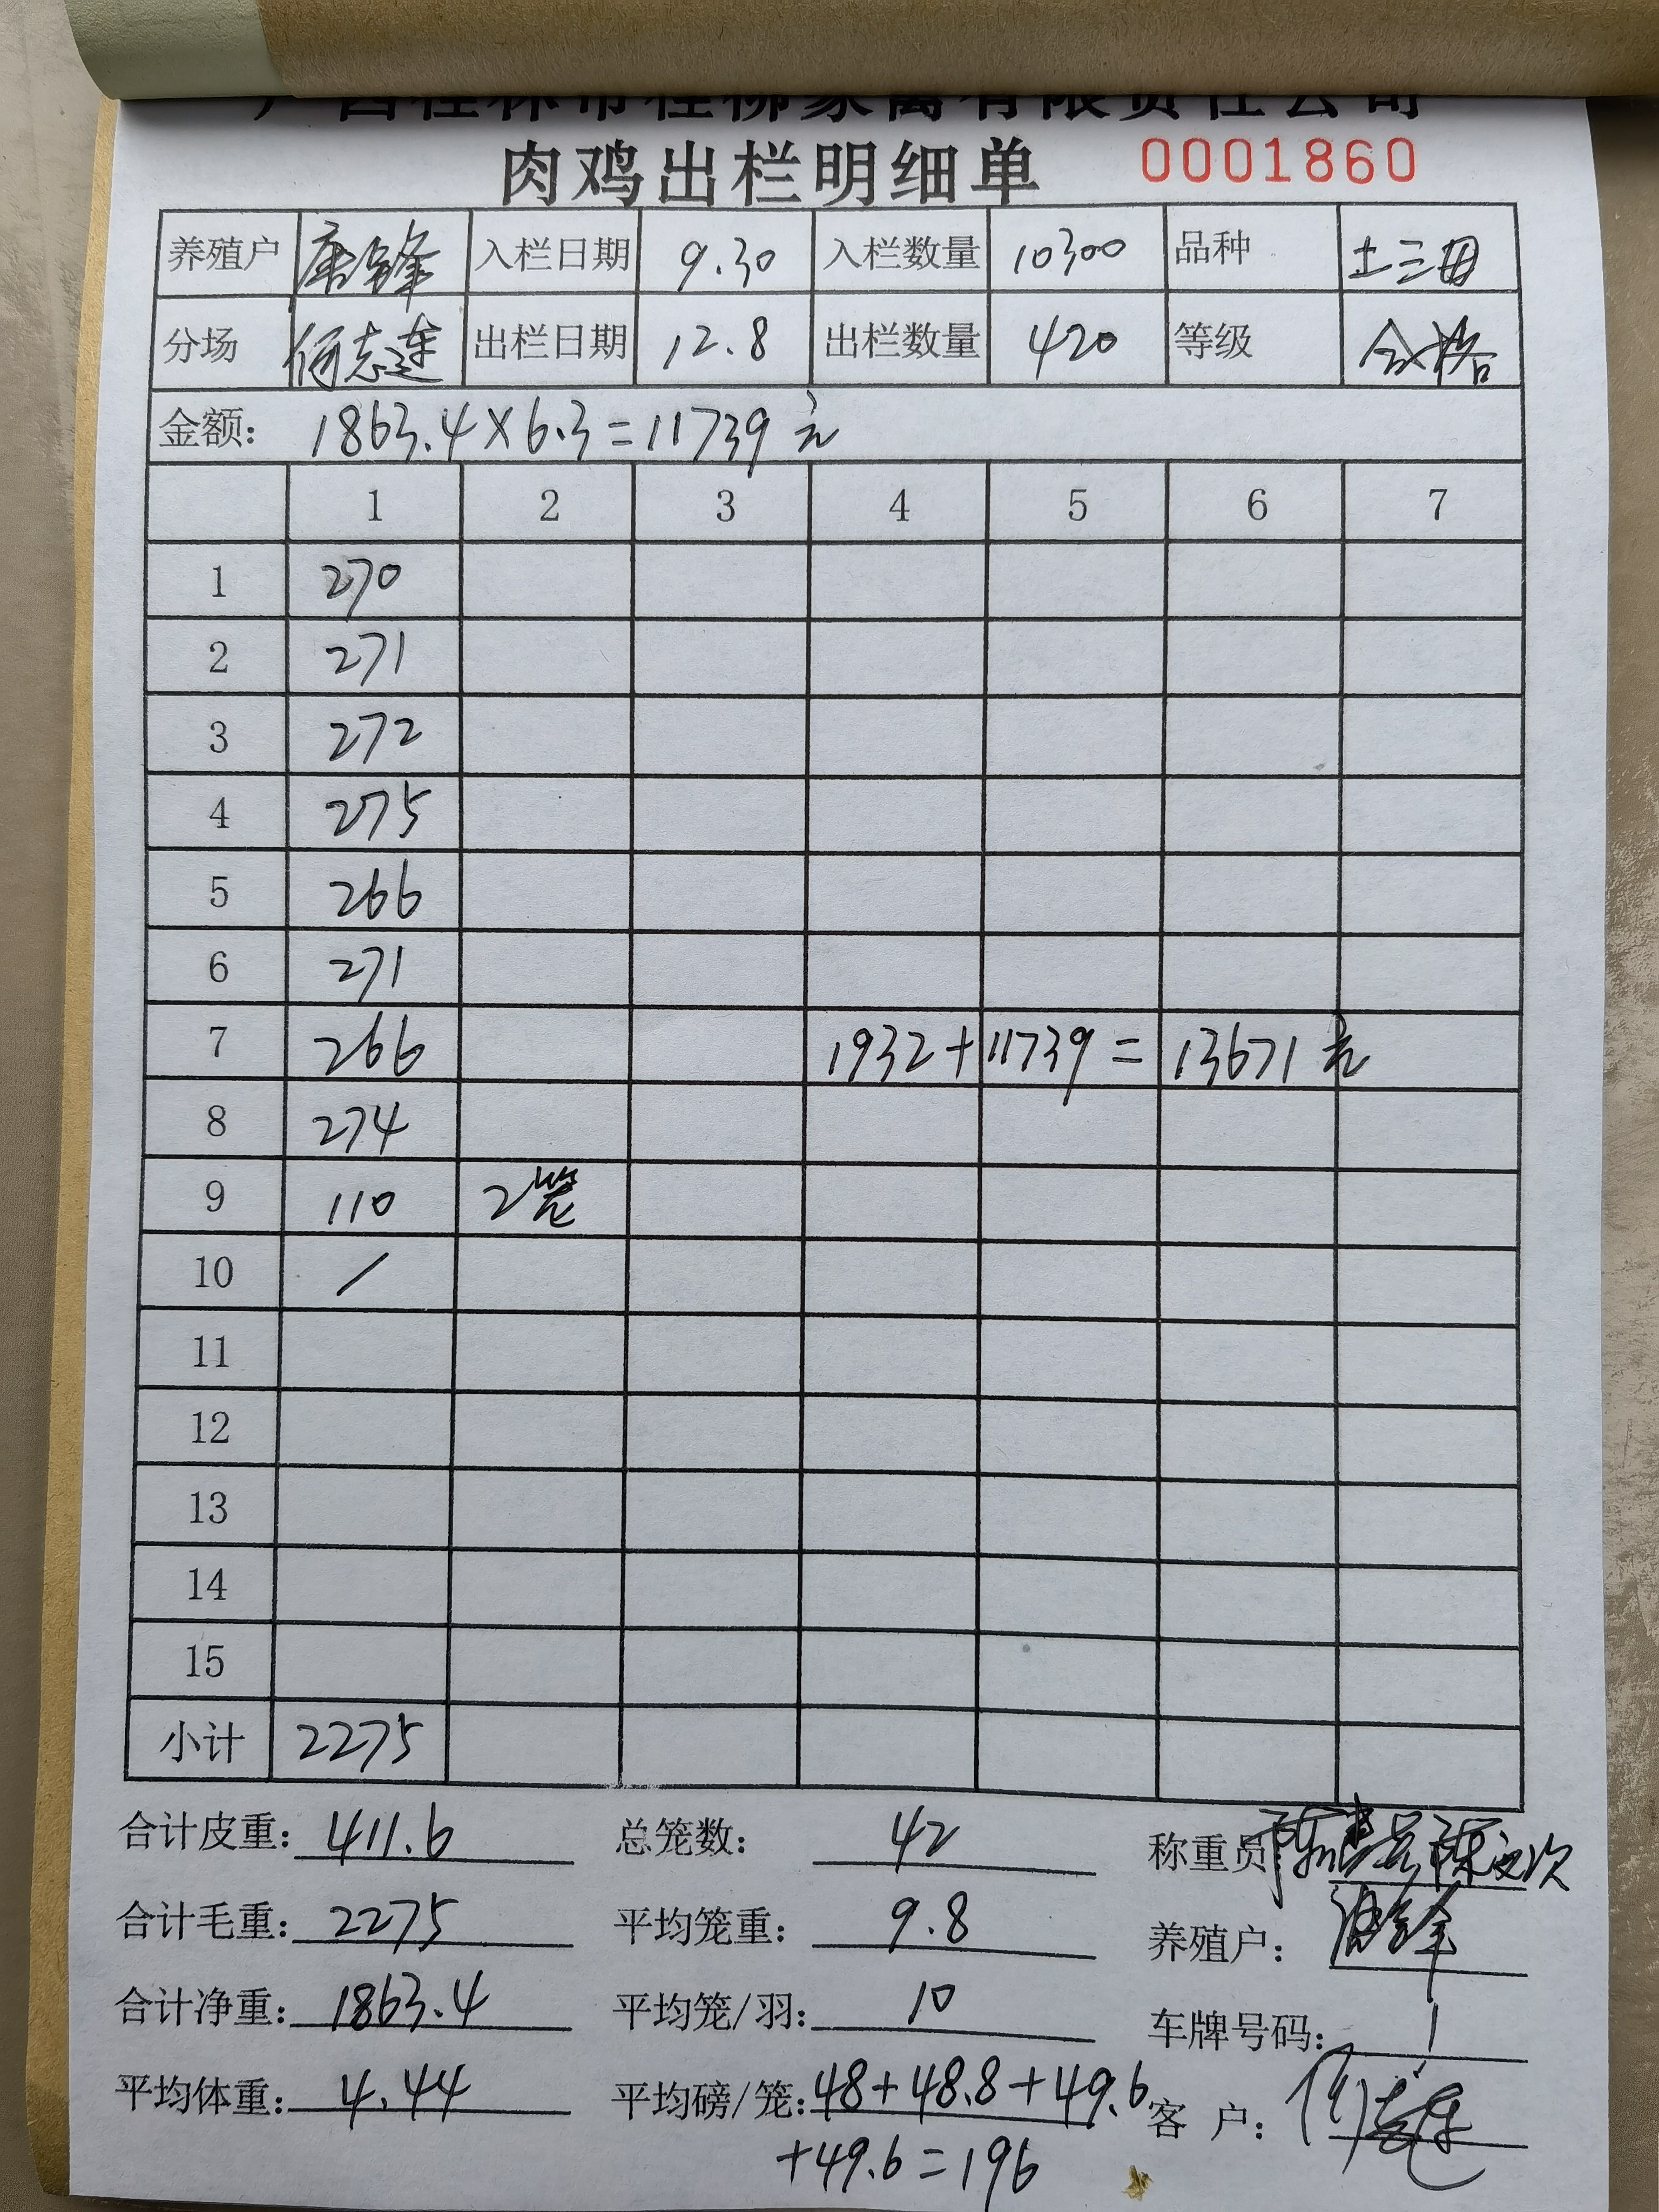 广西桂林市桂柳家禽有限责任公司
肉鸡出栏明细单 0001860
养殖户 唐锋 入栏日期 9.30 入栏数量 10300 品种 土三
分场 何志连 出栏日期 12.8 出栏数量 420 等级 合格
金额: 1863.4×6.3=11739元
1 2 3 4 5 6 7
1 270
2 271
3 272
4 275
5 266
6 271
7 266 1932+11739=13671元
8 274
9 110 2笼
10 /
11
12
13
14
15
小计 2275
合计皮重: 411.6 总笼数: 42 称重员:
合计毛重: 2275 平均笼重: 9.8 养殖户:
合计净重: 1863.4 平均笼/羽: 10 车牌号码: 1
平均体重: 4.44 平均磅/笼: 48+48.8+49.6 客 户: 何志连
+49.6=196